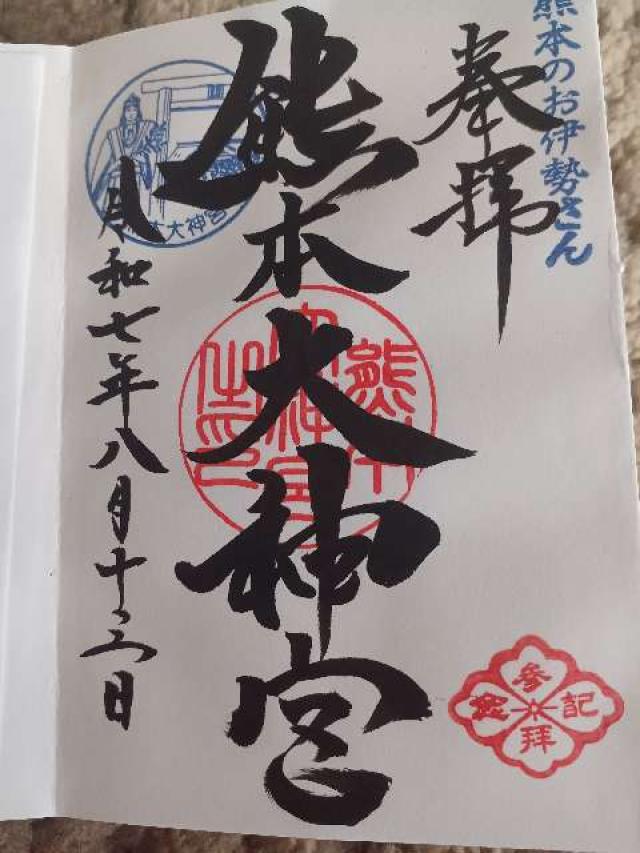 熊本のお伊勢さん
奉拝
熊本大神宮
熊本大神宮之印
令和七年八月十三日
大神宮
参拝記念